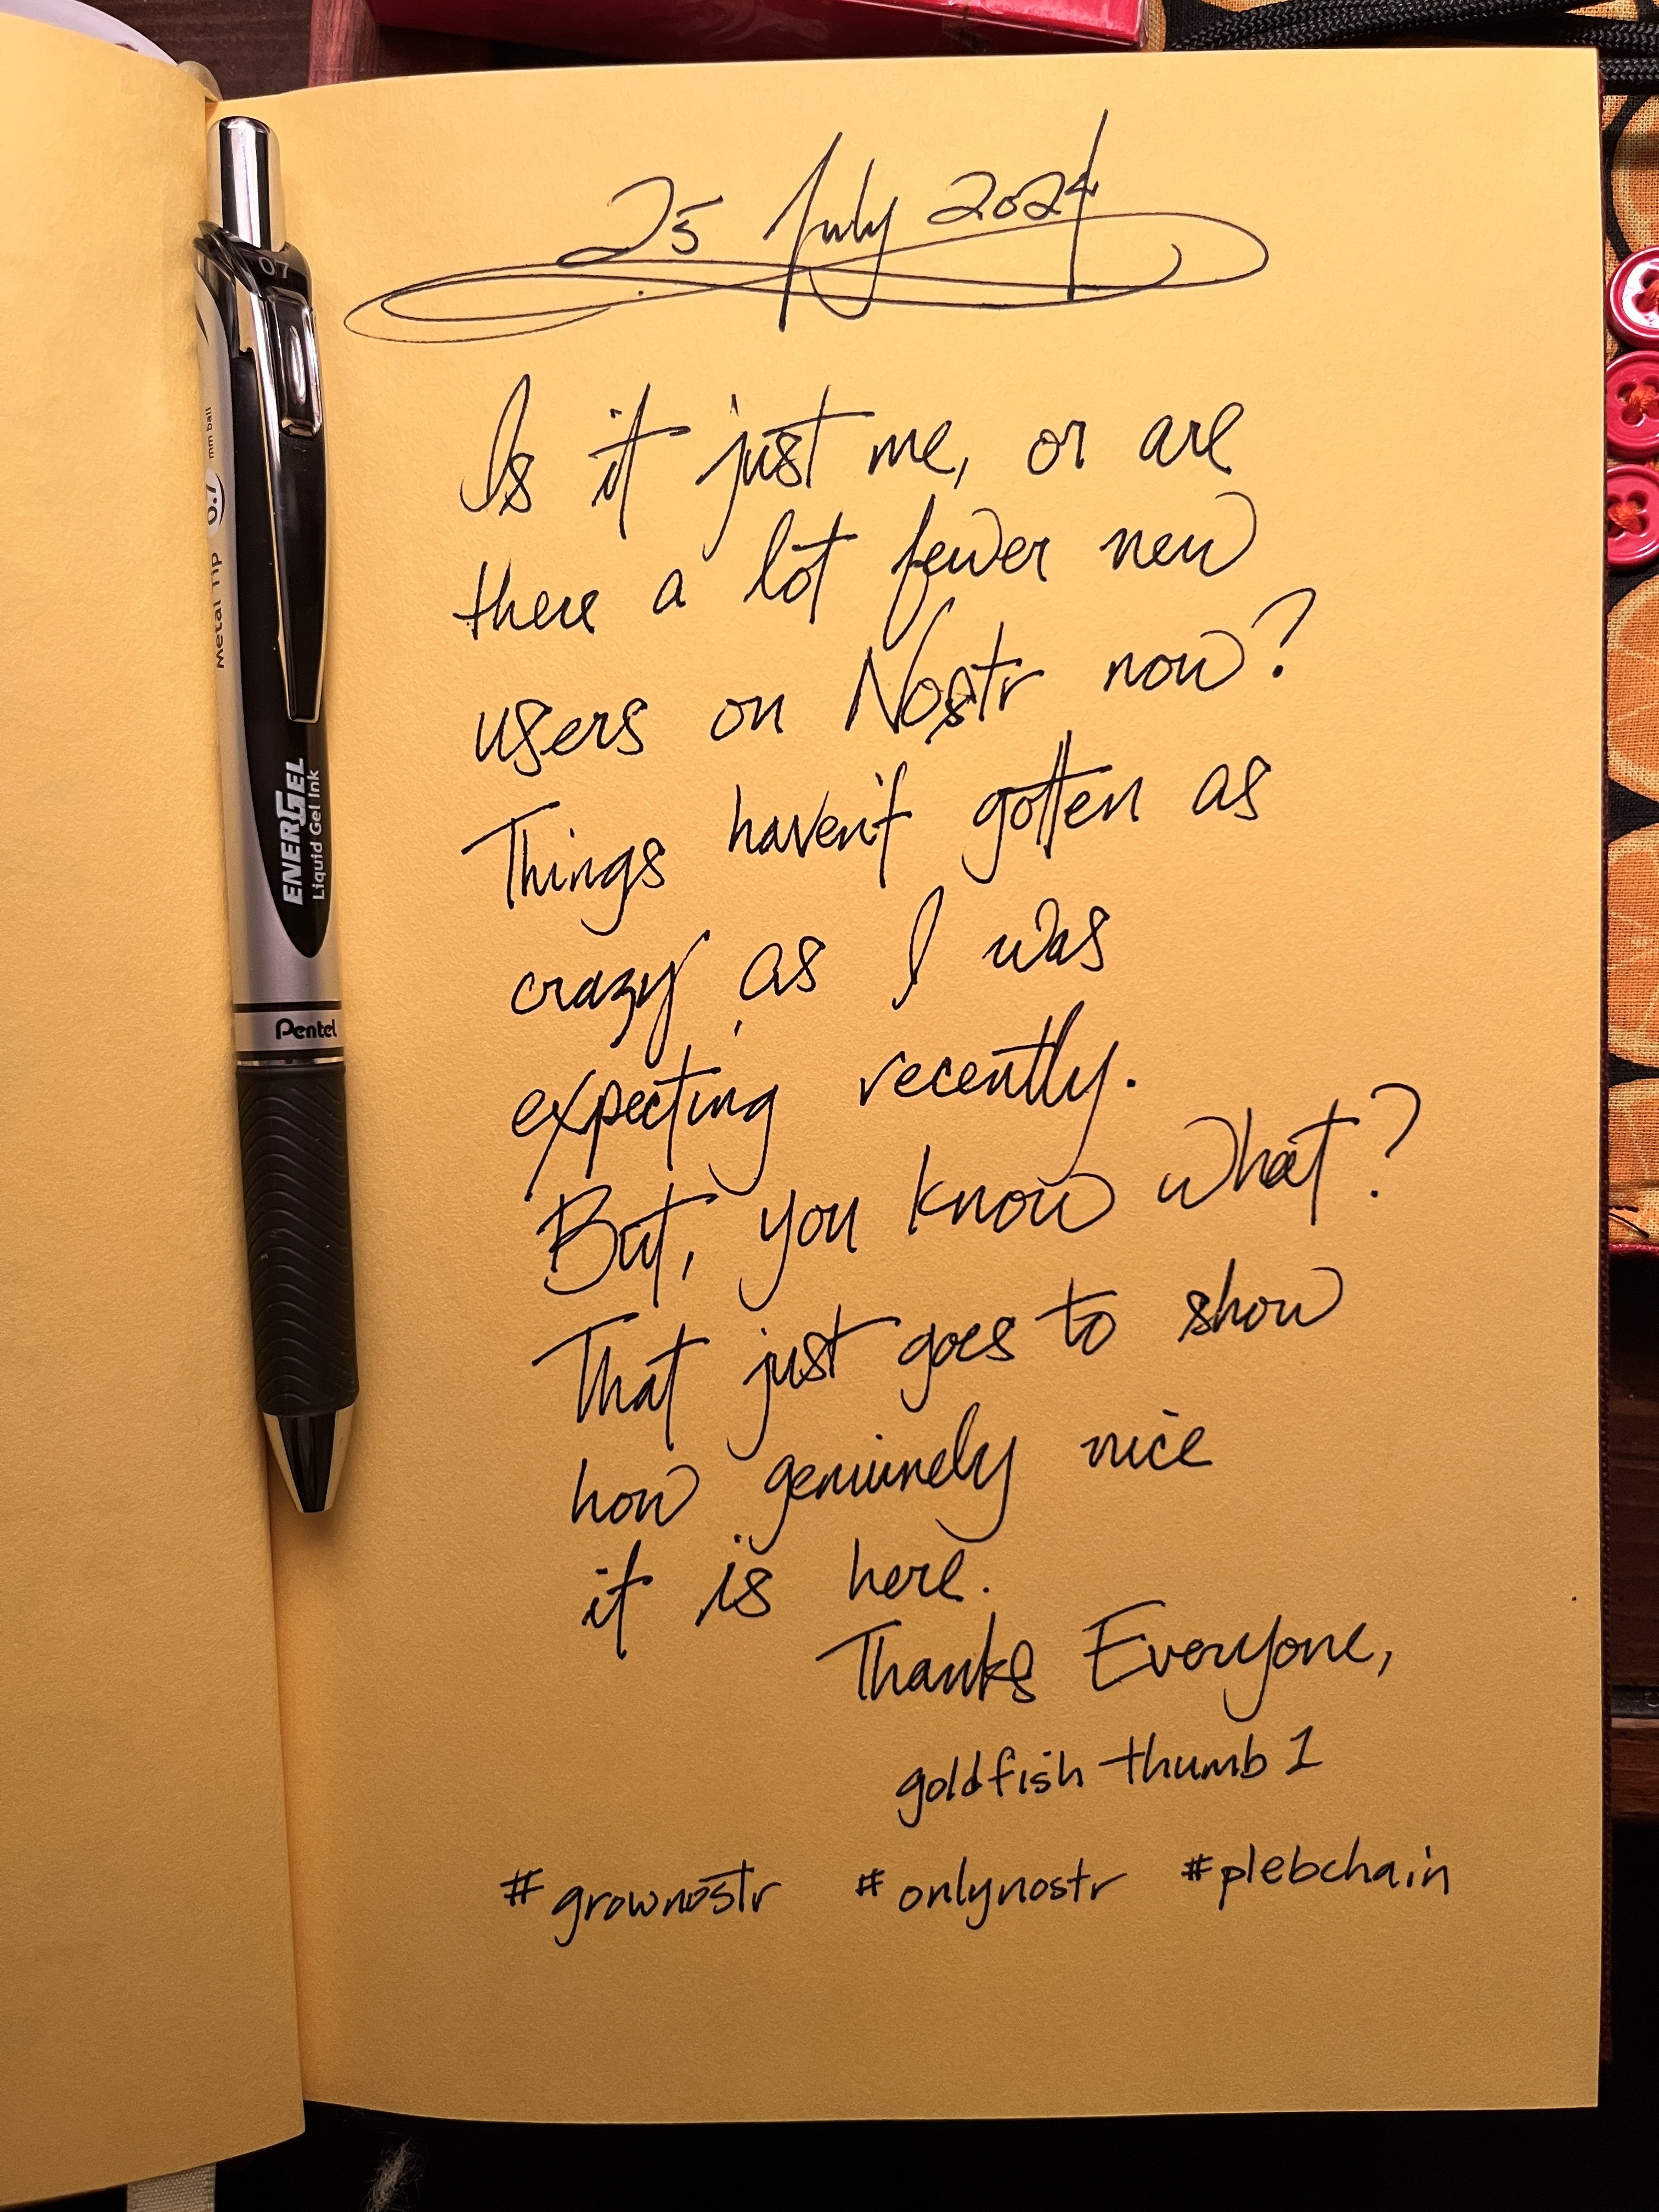 25 July 2024
Is it just me, or are
there a lot fewer new
users on Nostr now?
Things haven't gotten as
crazy as I was
expecting recently.
But, you know what?
That just goes to show
how genuinely nice
it is here.
Thanks Everyone,
goldfish thumb 1
#grownostr #onlynostr #plebchain
07
Metal Tip 0.7 mm ball
ENERGEL
Liquid Gel Ink
Pentel